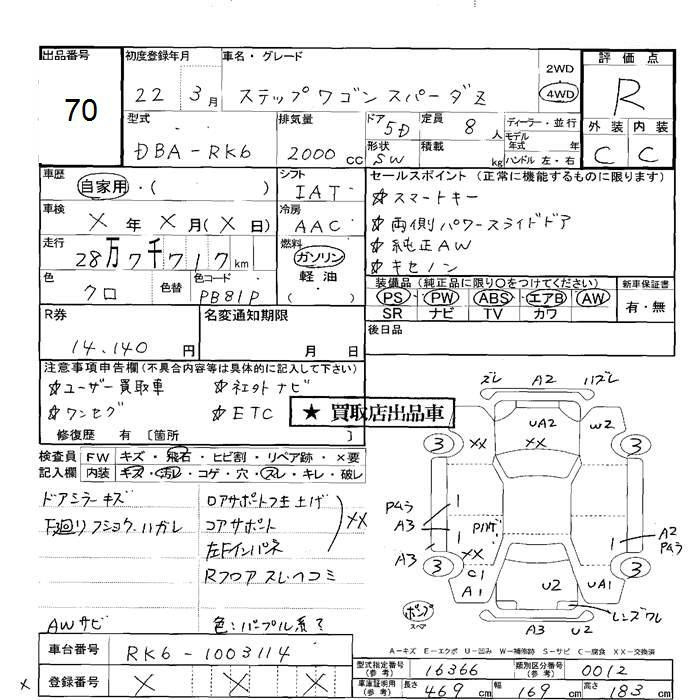 出品番号 初度登録年月 車名・グレード 評価点
70 22 3月 ステップワゴン スパーダZ 2WD 4WD R
型式 排気量 ドア 5D 定員 8人 ディーラー・並行 外装 内装
DBA-RK6 2000cc 形状 SW 積載 kg モデル年式 年 C C
ハンドル 左・右
車歴 自家用・( ) シフト IAT セールスポイント (正常に機能するものに限ります)
☆スマートキー
車検 ×年×月(×日) 冷房 AAC ☆両側パワースライドドア
☆純正AW
走行 28万7千717km 燃料 ガソリン 軽油 ( ) ☆キセノン
色 クロ 色替 色コード PB81P 装備品 (純正品に限り○をつけてください) 新車保証書
PS・PW・ABS・エアB・AW 有・無
SR ナビ TV カワ
R券 名変通知期限 後日品
14,140円 月 日
注意事項申告欄 (不具合内容等は具体的に記入して下さい)
☆ユーザー買取車 ☆社外ナビ
☆ワンセグ ☆ETC
★ 買取店出品車
修復歴 有 〔箇所 〕
検査員記入欄 FW キズ・飛石・ヒビ割・リペア跡・×要
内装 キズ・汚れ・コゲ・穴・スレ・キレ・破レ
ドアミラーキズ
下廻りフショク.ハガレ
コアサポート
左Fインパネ
XX
Rフロアスレ.ヘコミ
AWサビ 色:パープル系?
ズレ A2 ハズレ
UA2 W2
XX XX
3 3
Pムラ A3
A3
A2 Pムラ
XX
3 3
C1 A1 U2 UA1
レンズワレ
A3 U2
A-キズ E-エクボ U-凹み W-補修跡 S-サビ C-腐食 XX-交換済
車台番号 RK6-1003114
型式指定番号(参考) 16366 類別区分番号(参考) 0012
× 登録番号 × × ×
車庫証明用(参考) 長さ 469cm 幅 169cm 高さ 183cm